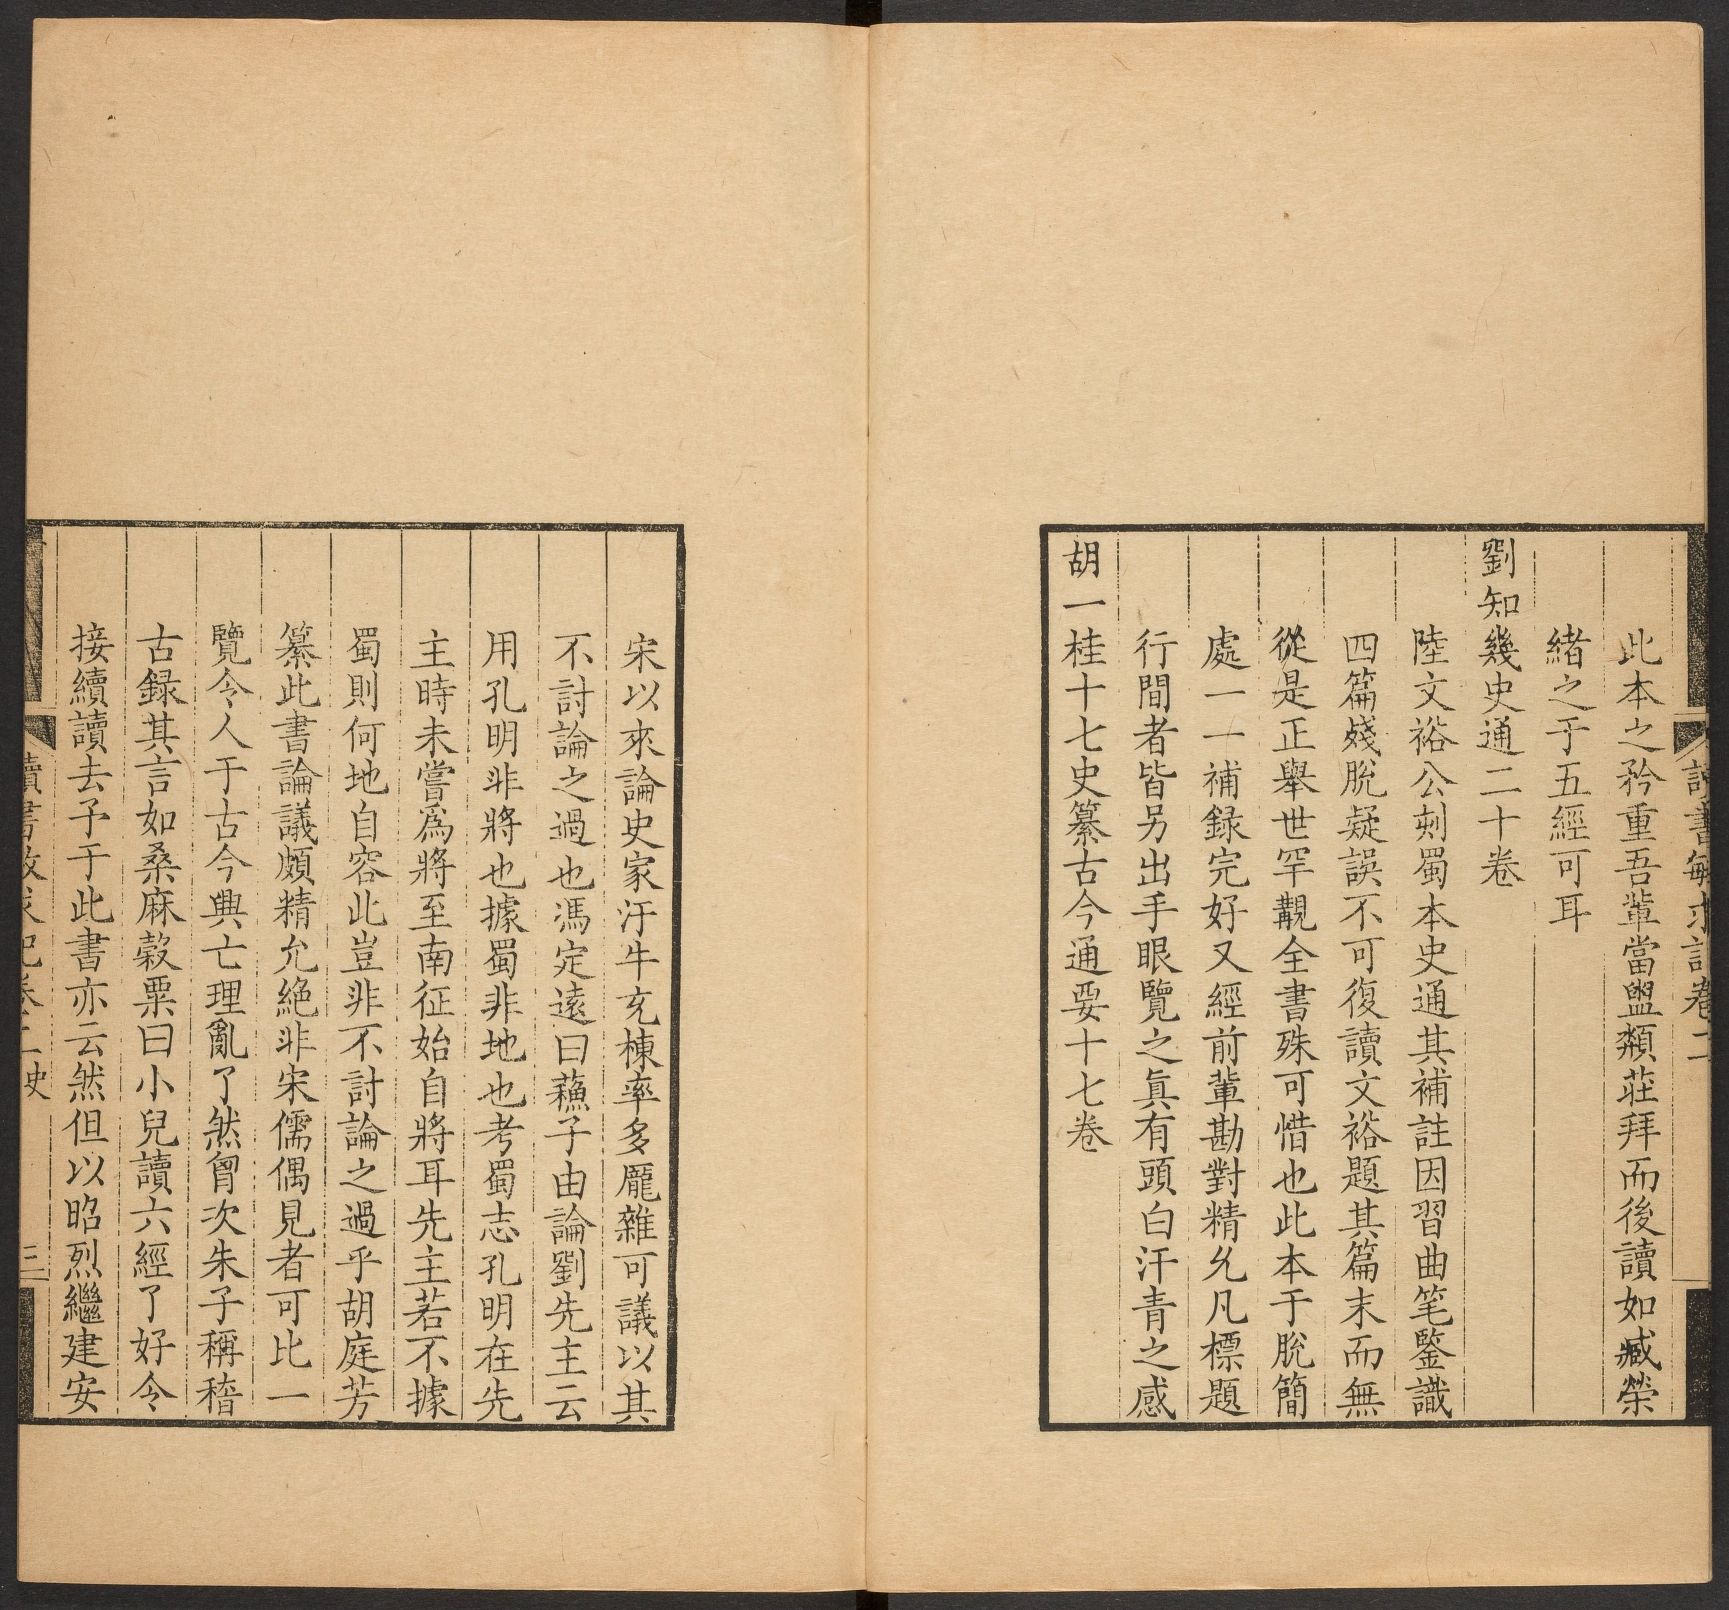 讀書敏求記卷二
此本之矜重吾輩當盥頮莊拜而後讀如臧榮
緒之于五經可耳
劉知幾史通二十卷
陸文裕公刻蜀本史通其補註因習曲笔鑒識
四篇殘脫疑誤不可復讀文裕題其篇末而無
從是正舉世罕覯全書殊可惜也此本于脫簡
處一一補録完好又經前輩勘對精允凡標題
行間者皆另出手眼覽之眞有頭白汗青之感
胡一桂十七史纂古今通要十七卷
宋以來論史家汗牛充棟率多龐雜可議以其
不討論之過也馮定遠曰蘓子由論劉先主云
用孔明非將也據蜀非地也考蜀志孔明在先
主時未嘗爲將至南征始自將耳先主若不據
蜀則何地自容此豈非不討論之過乎胡庭芳
纂此書論議頗精允絶非宋儒偶見者可比一
覽令人于古今興亡理亂了然胷次朱子稱稽
古録其言如桑麻糓粟曰小兒讀六經了好令
接續讀去予于此書亦云然但以昭烈繼建安
讀書敏求記卷二史 三